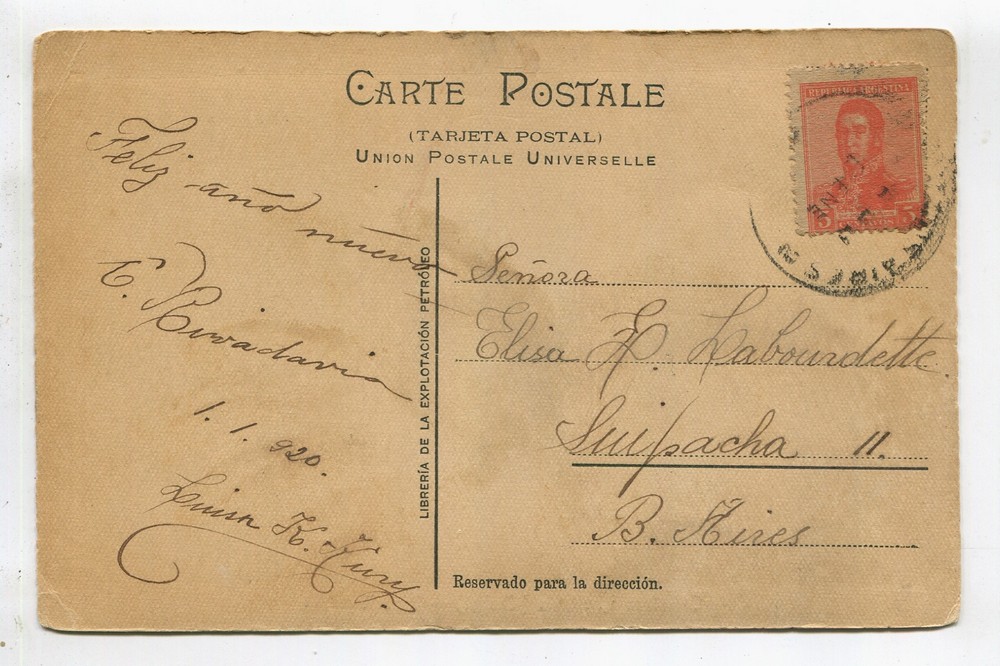 CARTE POSTALE
(TARJETA POSTAL)
UNION POSTALE UNIVERSELLE
REPUBLICA ARGENTINA
5 CENTAVOS 5
Feliz año nuevo
C. Rivadavia
1.1.920.
Luisa K.
LIBRERÍA DE LA EXPLOTACIÓN PETRÓLEO
Señora
Elisa F. Labourdette.
Suipacha 11.
B. Aires
Reservado para la dirección.